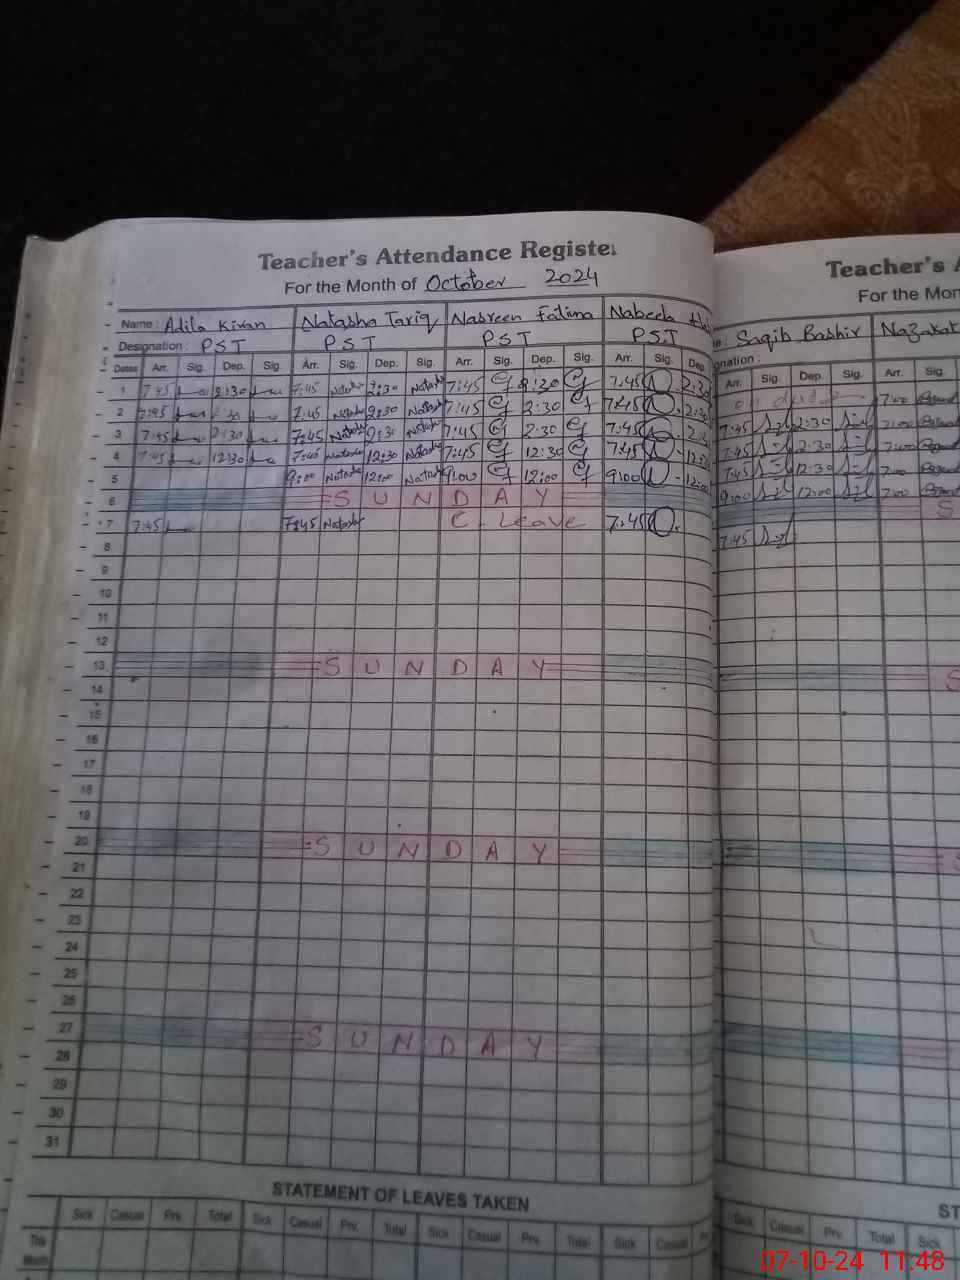 Teacher's Attendance Register
For the Month of October 2024
Name : Adila Kiran Natasha Tariq Nasreen Fatima Nabeela
Designation : PST PST PST PST
Dates Arr. Sig. Dep. Sig. Arr. Sig. Dep. Sig. Arr. Sig. Dep. Sig. Arr. Sig. Dep.
1 7:45 2:30 7:45 Natasha 2:30 Natasha 7:45 2:30 7:45 2:30
2 7:45 2:30 7:45 Natasha 2:30 Natasha 7:45 2:30 7:45 2:30
3 7:45 2:30 7:45 Natasha 2:30 Natasha 7:45 2:30 7:45 2:30
4 7:45 12:30 7:45 Natasha 12:30 Natasha 7:45 12:30 7:45 12:30
5 9:00 Natasha 12:00 Natasha 9:00 12:00 9:00 12:00
6 SUNDAY
7 7:45 7:45 Natasha C. Leave 7:45
8
9
10
11
12
13 SUNDAY
14
15
16
17
18
19
20 SUNDAY
21
22
23
24
25
26
27 SUNDAY
28
29
30
31
STATEMENT OF LEAVES TAKEN
Sick Casual Prv. Total Sick Casual Prv. Total Sick Casual Prv. Total Sick Casual
The
Month
Teacher's A
For the Mon
Saqib Bashir Nazakat
gnation :
Arr. Sig. Dep. Sig. Arr. Sig.
on 7:00
7:45 2:30 7:00
7:45 2:30 7:00
7:45 12:30 7:00
9:00 12:00 7:00
S
7:45
S
ST
Sick Casual Prv. Total Sick
07-10-24 11:48